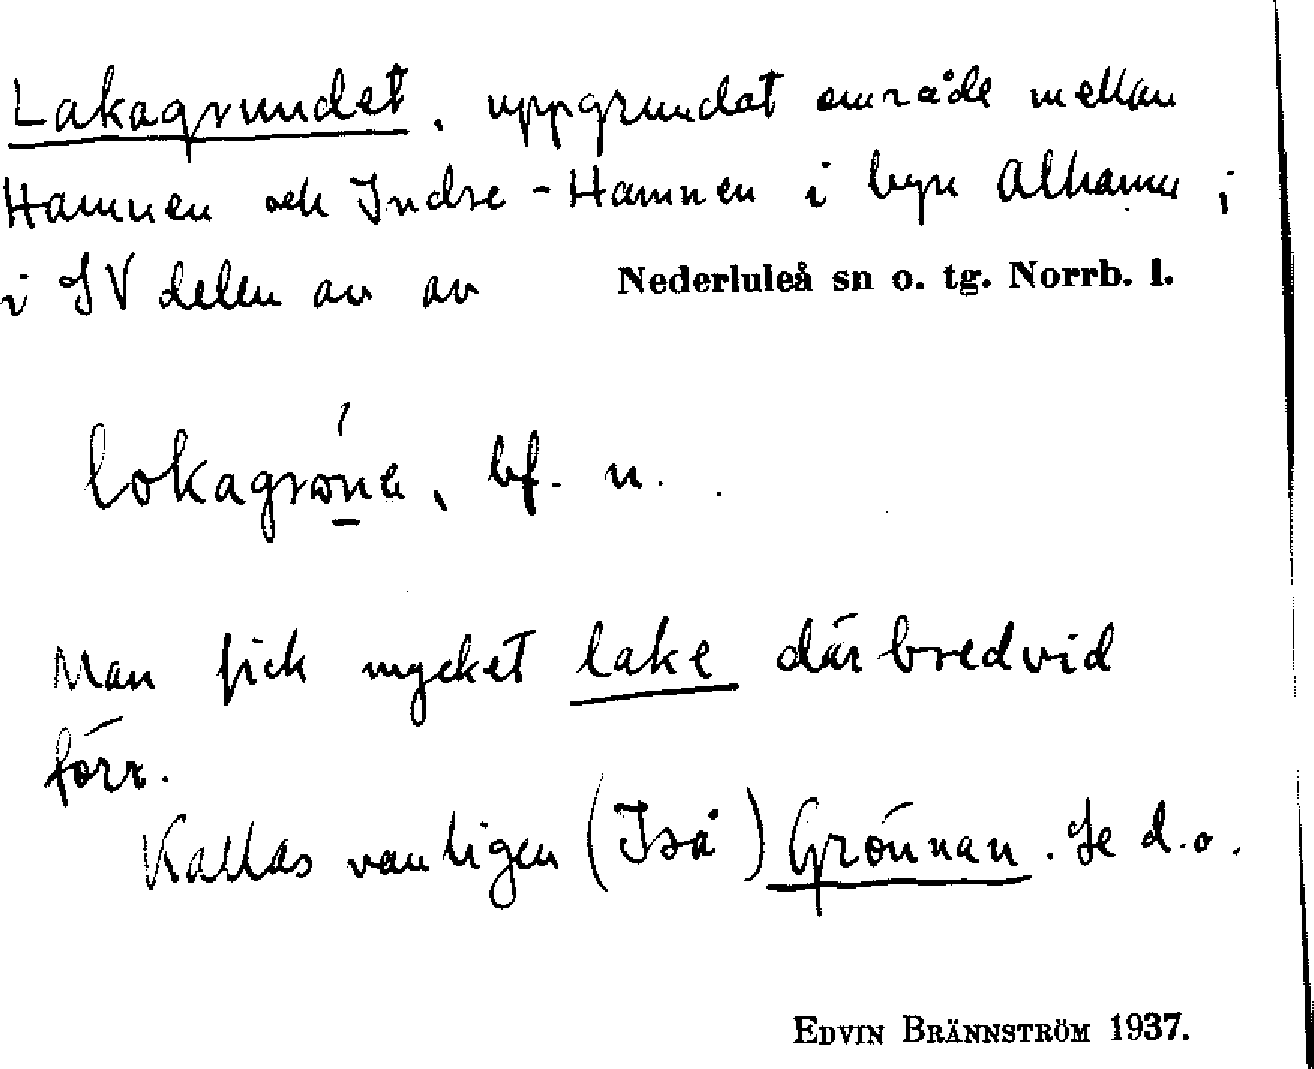 Lakagrundet, uppgrundat område mellan
Hamnen och Indre-Hamnen i byn Alhamn i
i SV delen av av Nederluleå sn o. tg. Norrb. l.
bf. n.
Man fick mycket lake där bredvid
förr.
Kallas vanligen (Iså) Grönnan. Se d.o.
EDVIN BRÄNNSTRÖM 1937.